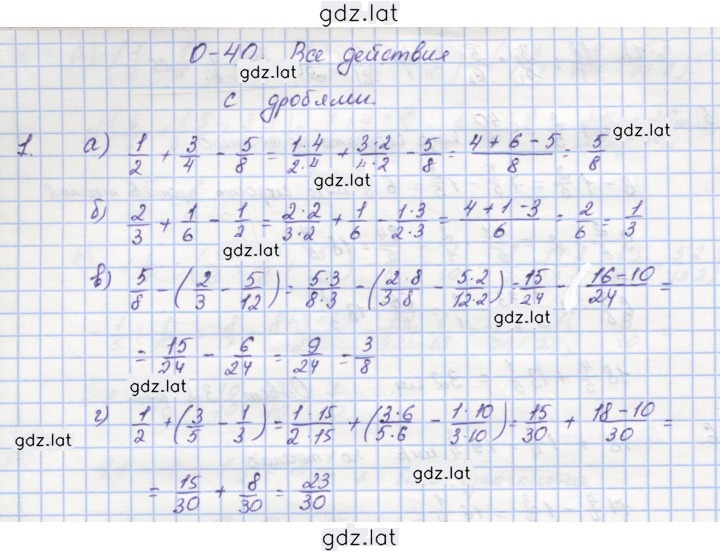 gdz.lat
О-40. Все действия
gdz.lat
с дробями.
1. а) 1/2 + 3/4 - 5/8 = 1·4/2·4 + 3·2/4·2 - 5/8 = 4+6-5/8 = 5/8
gdz.lat
gdz.lat
б) 2/3 + 1/6 - 1/2 = 2·2/3·2 + 1/6 - 1·3/2·3 = 4+1-3/6 = 2/6 = 1/3
gdz.lat
в) 5/8 - (2/3 - 5/12) = 5·3/8·3 - (2·8/3·8 - 5·2/12·2) = 15/24 - 16-10/24 =
gdz.lat
= 15/24 - 6/24 = 9/24 = 3/8
gdz.lat
г) 1/2 + (3/5 - 1/3) = 1·15/2·15 + (3·6/5·6 - 1·10/3·10) = 15/30 + 18-10/30 =
gdz.lat
gdz.lat
= 15/30 + 8/30 = 23/30
gdz.lat